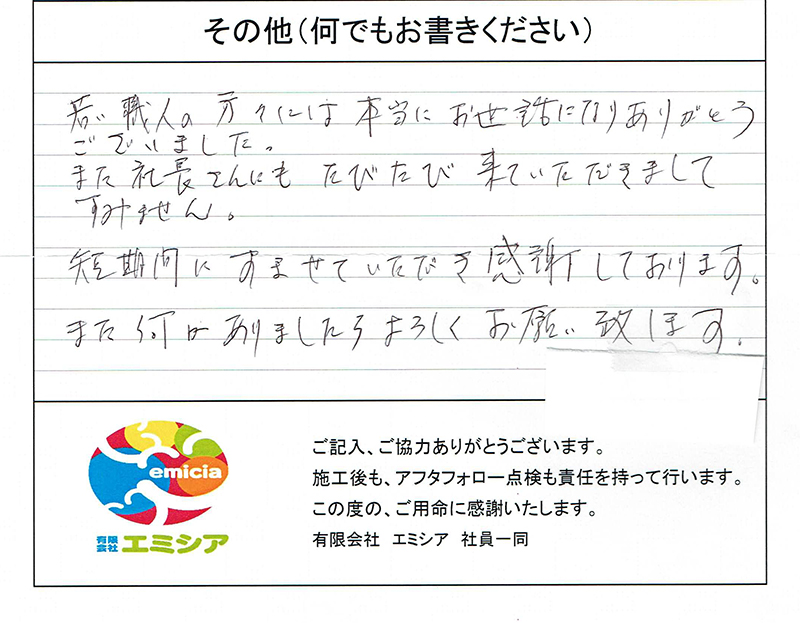 その他（何でもお書きください）
若い職人の方々には本当にお世話になりありがとう
ございました。
また社長さんにも たびたび来ていただきまして
すみません。
短期間にすませていただき感謝しております。
また何かありましたらよろしくお願い致します。
emicia
有限会社 エミシア
ご記入、ご協力ありがとうございます。
施工後も、アフタフォロー点検も責任を持って行います。
この度の、ご用命に感謝いたします。
有限会社 エミシア 社員一同